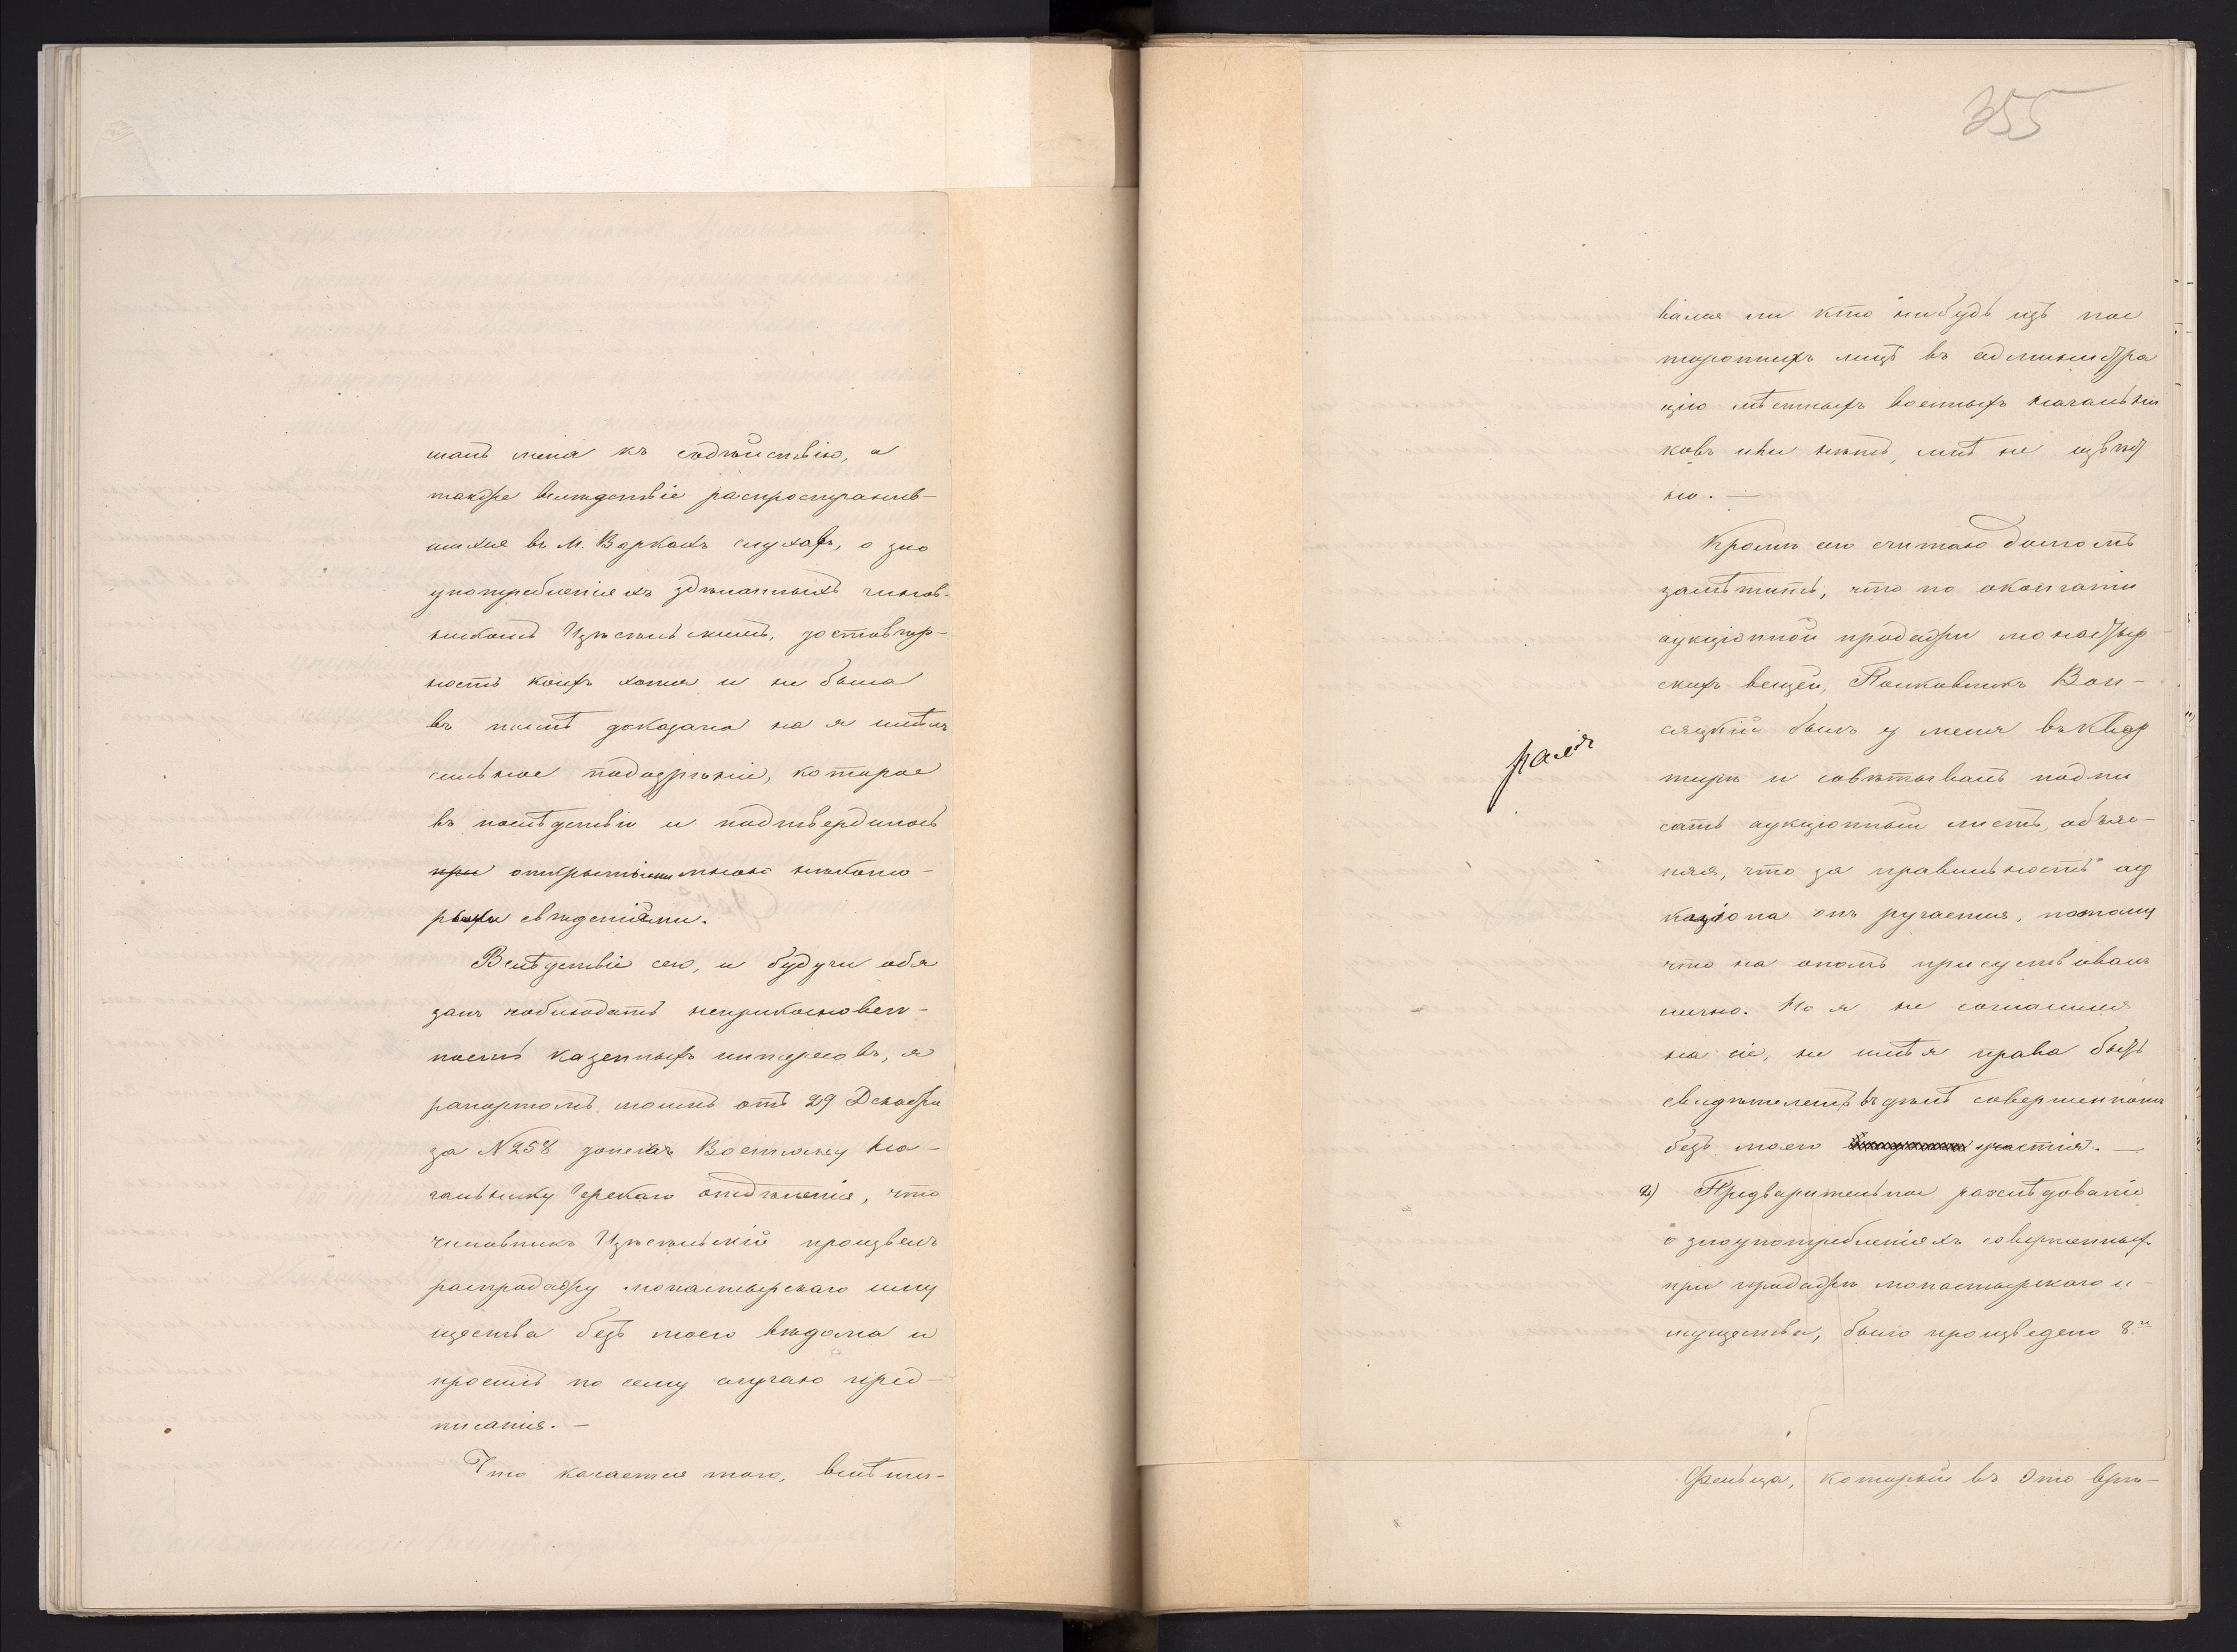 шалъ меня къ содѣйствію, а
также вслѣдствіе распространив-
шихся въ М. Варкахъ слуховъ, о зло
употребленіяхъ здѣланныхъ чинов-
никомъ Изъсѣльскимъ, достовѣр-
ность коихъ хотя и не была
въ полнѣ доказана но я имѣлъ
сильное подозрѣніе, которое
въ послѣдствіи и подтвердилось
при открытыми мною нѣкото-
рыми свѣденіями.
Вслѣдствіе сего, и будучи обя
занъ наблюдать неприкосновен-
ность казенныхъ интересовъ, я
рапортомъ моимъ отъ 29 Декабря
за № 258 донесъ Военному На-
чальнику Черскаго отдѣленія, что
чиновникъ Изъсѣльскій произвелъ
распродажу монастырскаго иму
щества безъ моего вѣдома и
просилъ по сему случаю пред-
писанія. —
Что касается того, вмѣши-
355
вался ли кто нибудь изъ пос
тороннихъ лицъ въ администра
цію мѣстныхъ военныхъ начальни
ковъ или нѣтъ, мнѣ не извѣст
но. —
Кромѣ сего считаю долгомъ
замѣтить, что по окончаніи
аукціонной продажи монастыр
скихъ вещей, Полковникъ Вон-
сяцкій былъ у меня въ квар
тирѣ и совѣтывалъ подпи
сать аукціонный листъ, объяс-
няя, что за правильность ау
кціона онъ ручается, потому
что на ономъ присутствовалъ
лично. Но я не согласился
на сіе, не имѣя права быть
свидѣтелемъ въ дѣлѣ совершенномъ
безъ моего участія. —
2) Предварительное разслѣдованіе
о злоупотребленіяхъ совершенныхъ
при продажѣ монастырскаго и-
мущества, было произведено 8и
Фельца, который въ это врѣ-